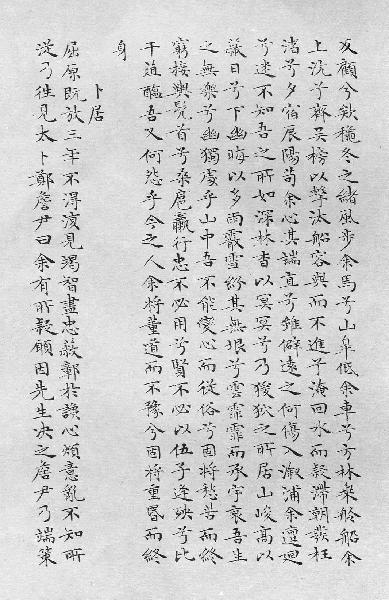 反顧兮欸穐冬之緒風步余馬兮山皋低余車兮方林乘舲船余
上沅兮齊吳榜以擊汰船容與而不進兮淹回水而疑滯朝發枉
渚兮夕宿辰陽苟余心其端直兮雖僻遠之何傷入漵浦余邅迴
兮迷不知吾之所如深林杳以冥冥兮乃猨狖之所居山峻高以
蔽日兮下幽晦以多雨霰雪紛其無垠兮雲霏霏而承宇哀吾生
之無樂兮幽獨處乎山中吾不能變心而從俗兮固將愁苦而終
窮接輿髡首兮桑扈臝行忠不必用兮賢不必以伍子逢殃兮比
干菹醢吾又何怨乎今之人余將董道而不豫兮固將重昏而終
身
卜居
屈原既放三年不得復見竭智盡忠蔽鄣於讒心煩意亂不知所
從乃往見太卜鄭詹尹曰余有所疑願因先生決之詹尹乃端策